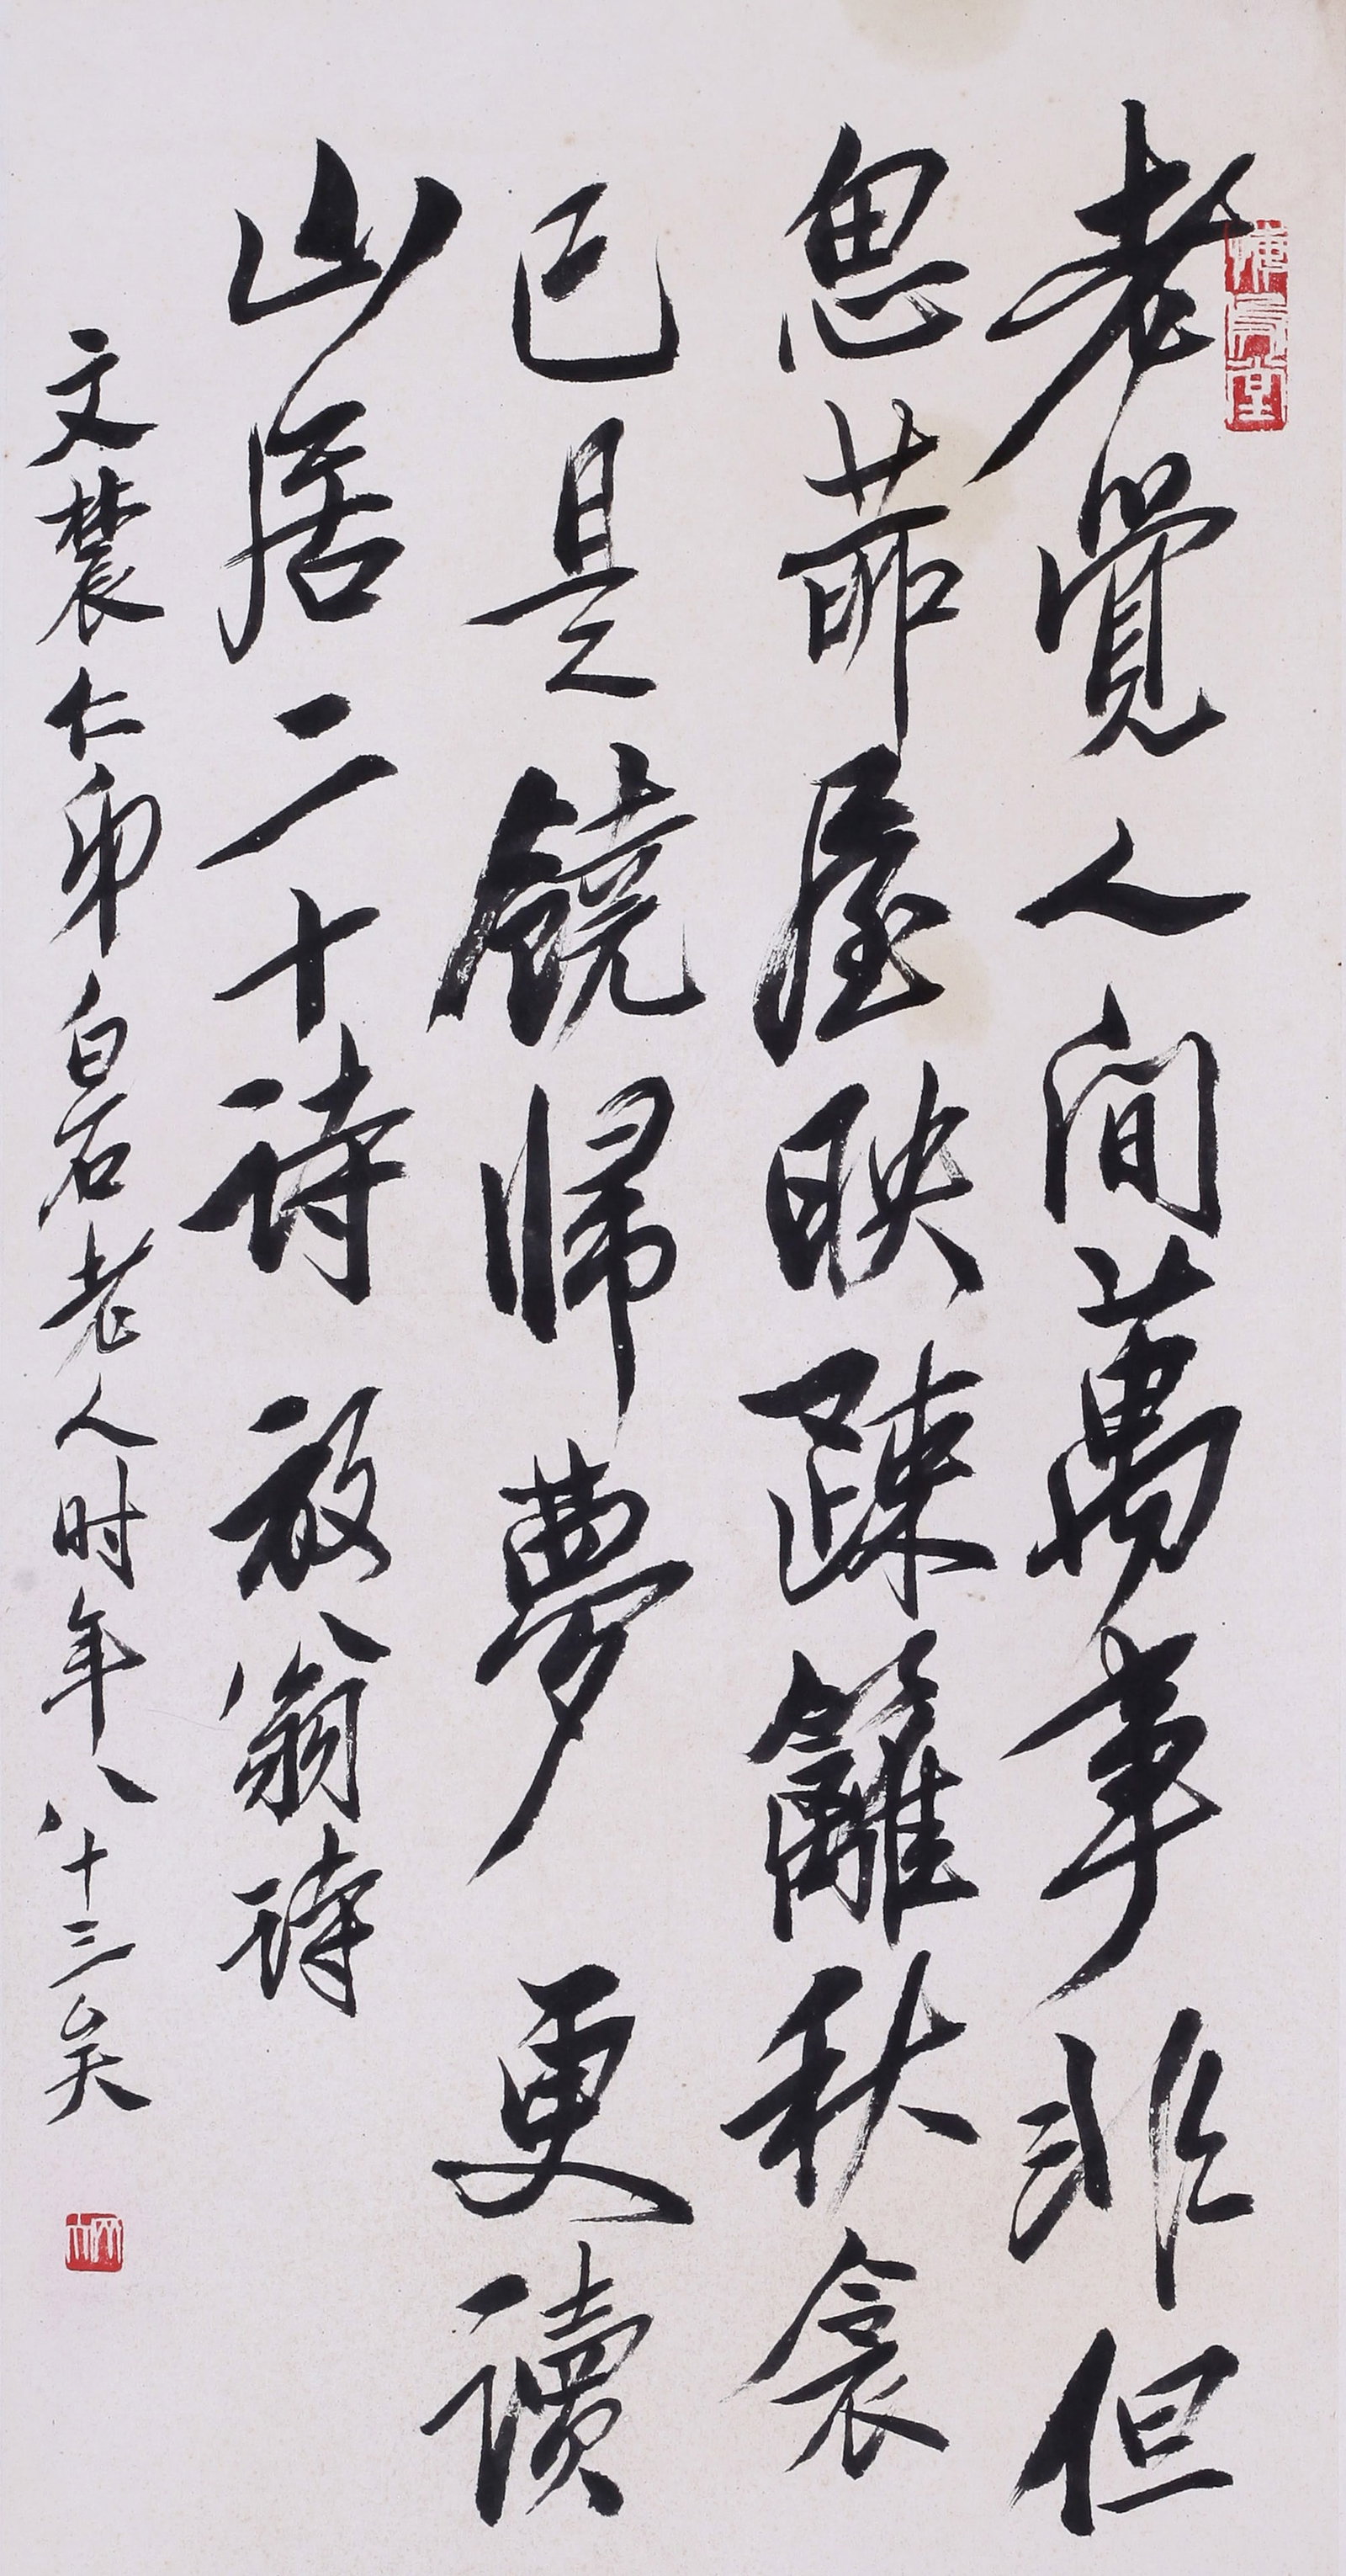 老覺人间萬事非但
思茆屋映疎籬秋衾
已是饒歸夢更讀
山居二十诗放翁诗
文農仁弟白石老人时年八十三矣